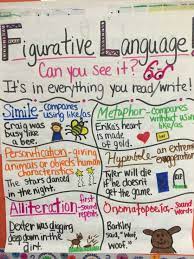 Figurative Language!
Can you see it?
It's in everything you read/write!
Simile - compares
using like/as
Craig was
busy like a
bee.
Metaphor - compares
without using
like/as
Erika's heart
is made
of gold.
Personification - giving
animals or objects human
characteristics
The stars danced
in the night.
Hyperbole - an extreme
exaggeration
Tyler will die
if he doesn't
get the game.
Alliteration - first
sound
repeats
Dexter was digging
deep down in the
dirt.
Onomatopoeia - sound
words
Barkley
said, "Woof,
Woof."